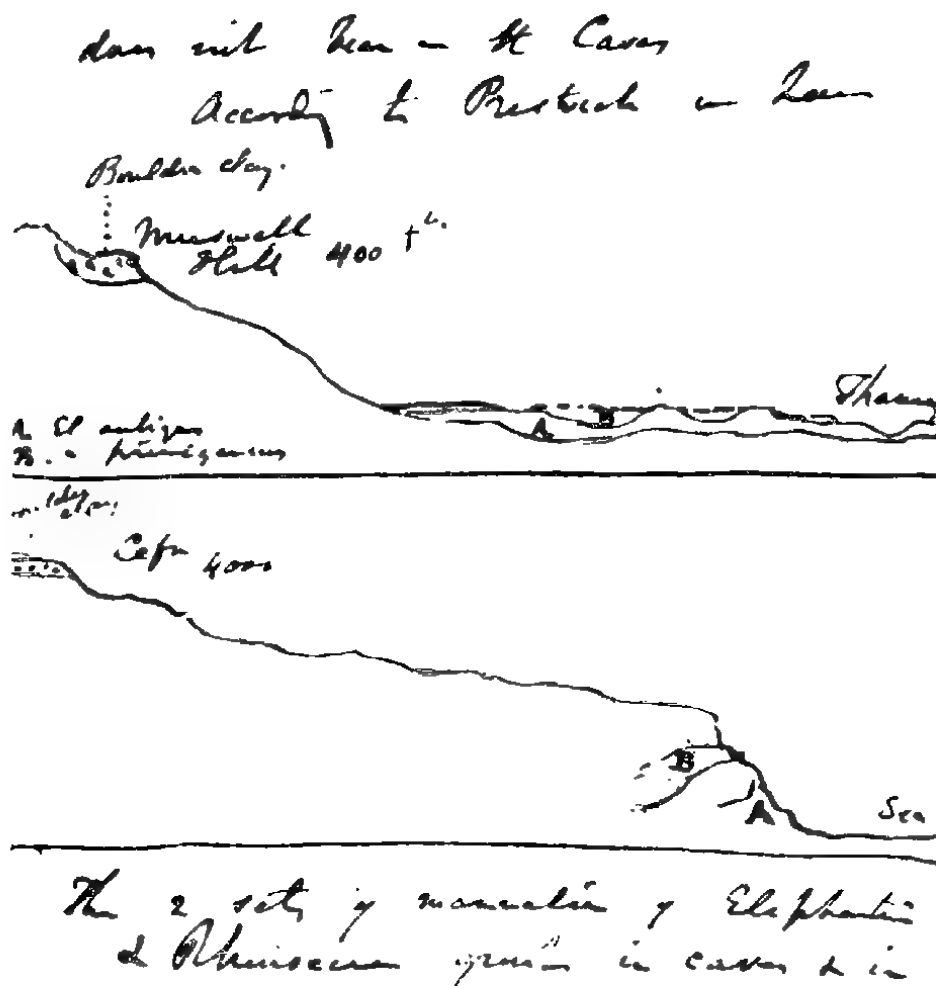 does not bear on the Caves
According to Prestwich in
Boulder clay.
Muswell
Hill 400 ft.
Thames
A. El antiquus
B. " primigenius
B
A
Cefn 400
B
A
Sea
The 2 sets of mammalia of Elephantine
& Rhinoceros in caves & in